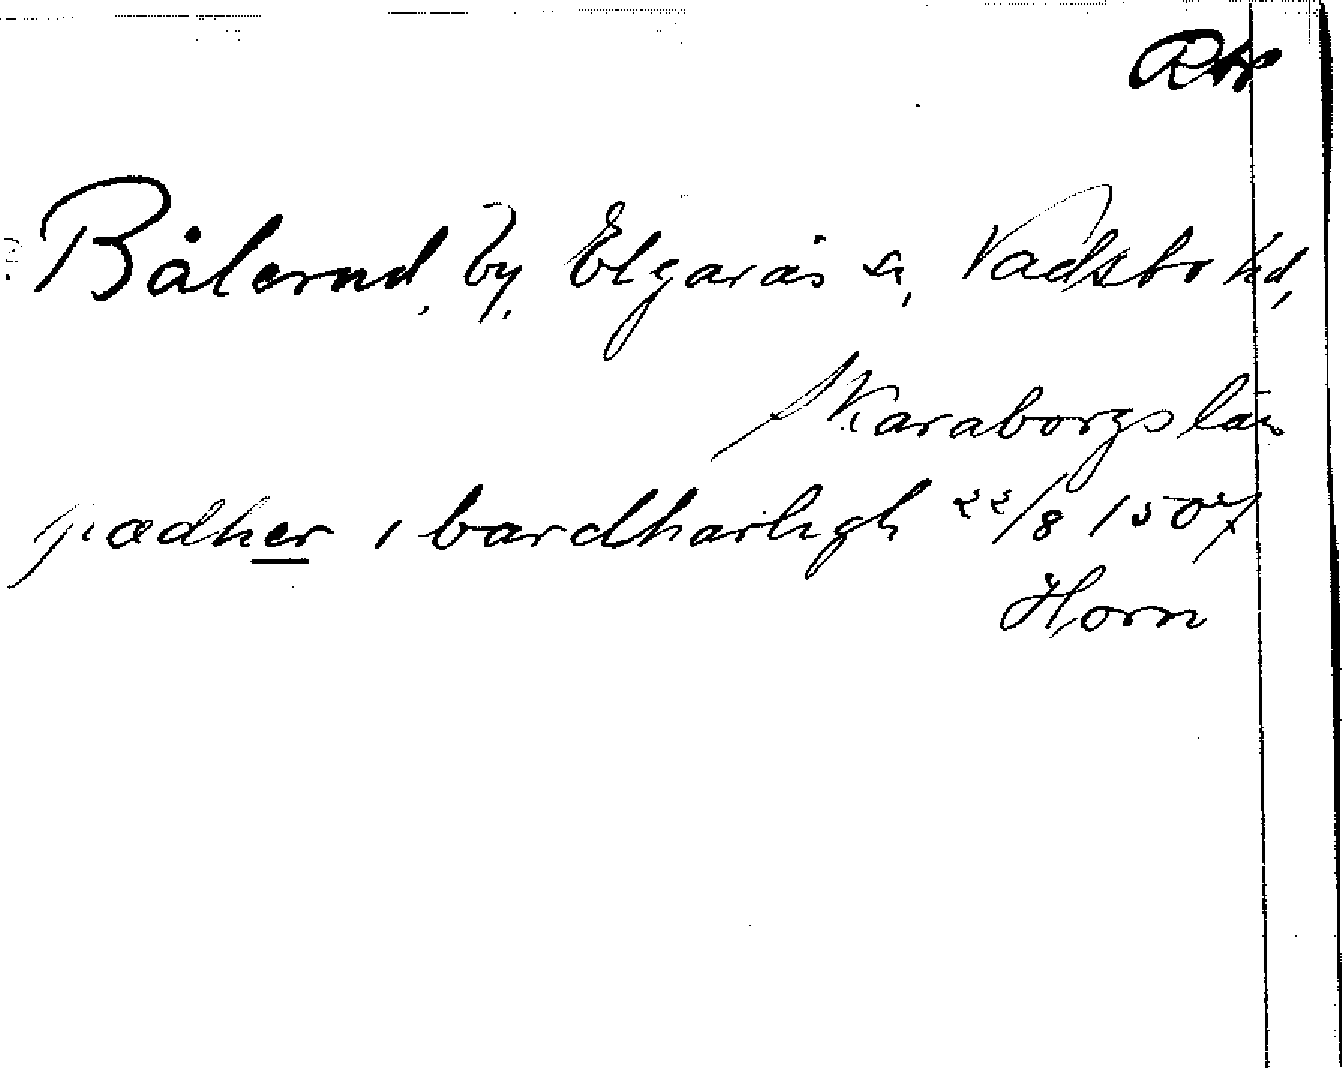 Rtp
Bålerud, by, Elgarås sn, Vadsbo hd,
Skaraborgs län
pædher i bardharligh 22/8 1507
Horn